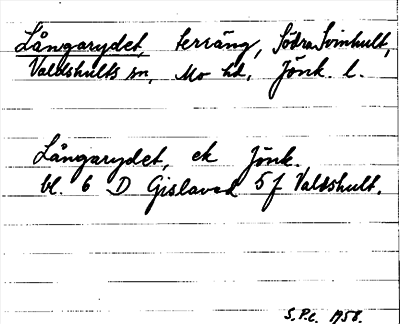 Långarydet, terräng, Södra Svinhult,
Valdshults sn, Mo hd, Jönk. l.
Långarydet, ek Jönk.
bl. 6 D Gislaved 5 f Valdshult.
S.P.c. 1958.